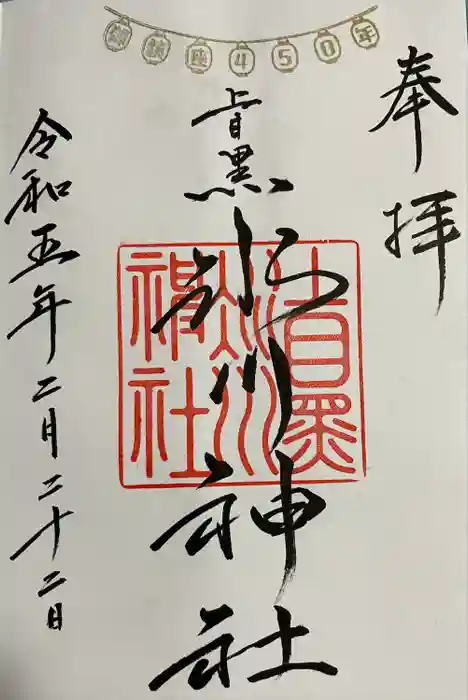 御鎮座450年
奉拝
上目黒
氷川神社
上目黒
氷川
神社
令和五年二月二十二日